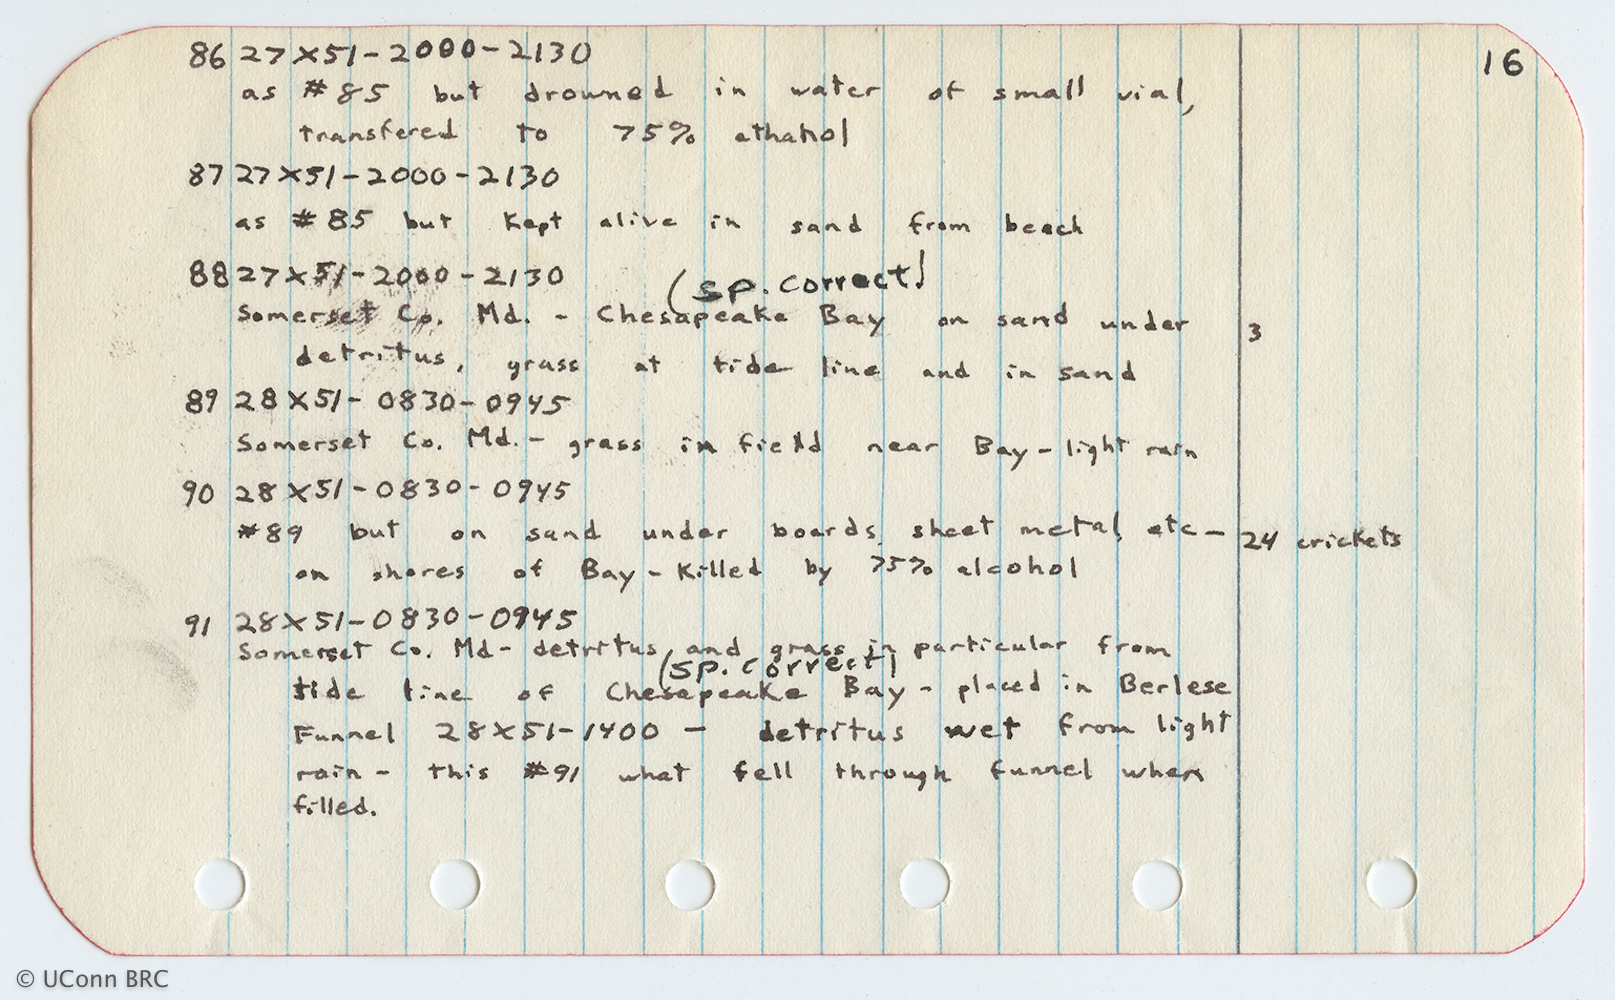 16
86 27X51-2000-2130
as #85 but drowned in water of small vial,
transfered to 75% ethahol
87 27X51-2000-2130
as #85 but kept alive in sand from beach
88 27X51-2000-2130 (sp. correct)
Somerset Co. Md. - Chesapeake Bay on sand under 3
detritus, grass at tide line and in sand
89 28X51-0830-0945
Somerset Co. Md. - grass in field near Bay - light rain
90 28X51-0830-0945
#89 but on sand under boards, sheet metal, etc - 24 crickets
on shores of Bay - Killed by 75% alcohol
91 28X51-0830-0945
Somerset Co. Md - detritus and grass in particular from
(sp. correct)
tide line of Chesapeake Bay - placed in Berlese
Funnel 28X51-1400 - detritus wet from light
rain - this #91 what fell through funnel when
filled.
© UConn BRC